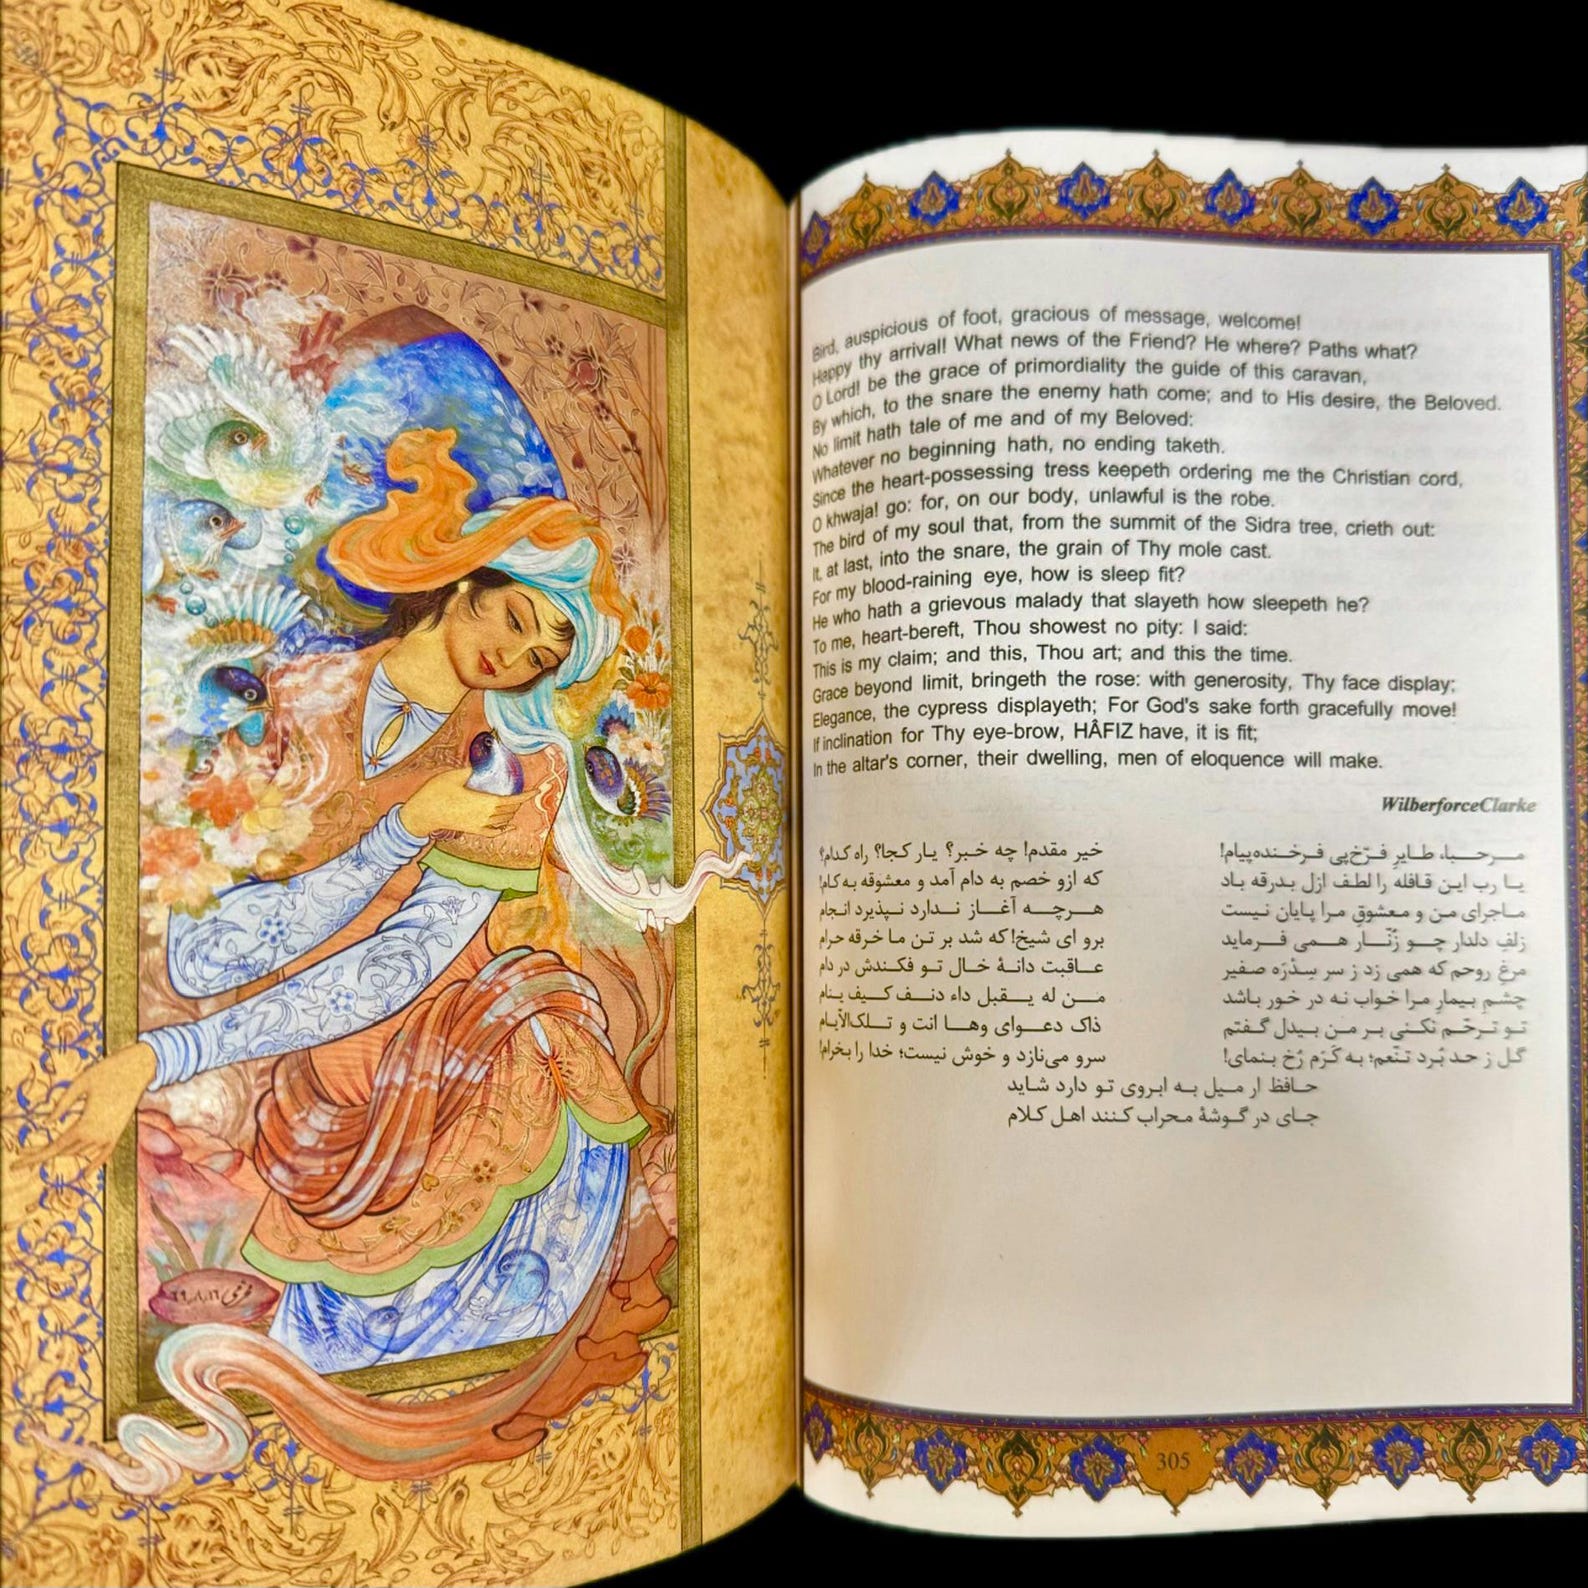 Bird, auspicious of foot, gracious of message, welcome!
Happy thy arrival! What news of the Friend? He where? Paths what?
O Lord! be the grace of primordiality the guide of this caravan,
By which, to the snare the enemy hath come; and to His desire, the Beloved.
No limit hath tale of me and of my Beloved:
Whatever no beginning hath, no ending taketh.
Since the heart-possessing tress keepeth ordering me the Christian cord,
O khwaja! go: for, on our body, unlawful is the robe.
The bird of my soul that, from the summit of the Sidra tree, crieth out:
It, at last, into the snare, the grain of Thy mole cast.
For my blood-raining eye, how is sleep fit?
He who hath a grievous malady that slayeth how sleepeth he?
To me, heart-bereft, Thou showest no pity: I said:
This is my claim; and this, Thou art; and this the time.
Grace beyond limit, bringeth the rose: with generosity, Thy face display;
Elegance, the cypress displayeth; For God's sake forth gracefully move!
If inclination for Thy eye-brow, HÂFIZ have, it is fit;
In the altar's corner, their dwelling, men of eloquence will make.
WilberforceClarke
مرحبا، طایرِ فرّخ‌پی فرخنده‌پیام! خیر مقدم! چه خبر؟ یار کجا؟ راه کدام؟
یا رب این قافله را لطف ازل بدرقه باد که ازو خصم به دام آمد و معشوقه به کام!
ماجرای من و معشوقِ مرا پایان نیست هرچه آغاز ندارد نپذیرد انجام
زلفِ دلدار چو زُنّار همی فرماید برو ای شیخ! که شد بر تن ما خرقه حرام
مرغِ روحم که همی زد ز سر سِدْرَه صفیر عاقبت دانهٔ خال تو فکندش در دام
چشمِ بیمارِ مرا خواب نه در خور باشد من له یقبل داء دنف کیف ینام
تو ترحّم نکنی بر من بیدل گفتم ذاک دعوای وها انت و تلک‌الأیام
گل ز حد بُرد تنّعم؛ به کَرَم رُخ بنمای! سرو می‌نازد و خوش نیست؛ خدا را بخرام!
حافظ ار میل به ابروی تو دارد شاید
جای در گوشهٔ محراب کنند اهل کلام
305